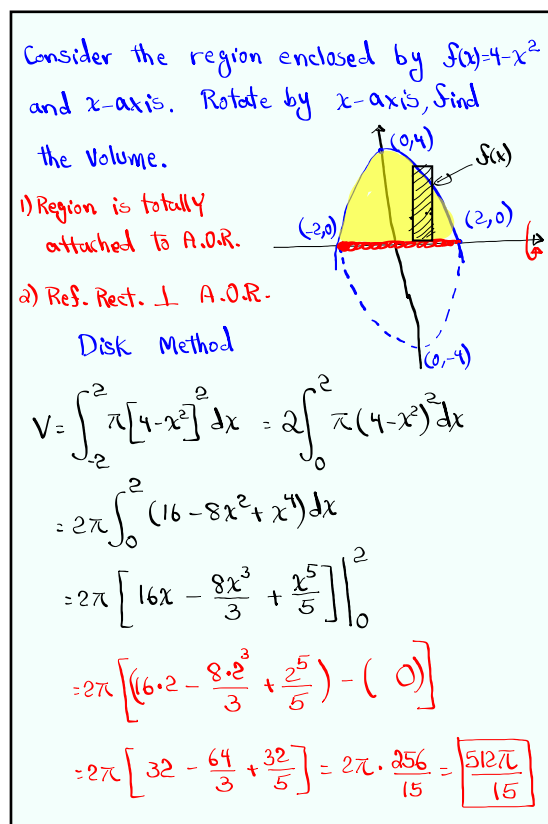 Consider the region enclosed by f(x)=4-x²
and x-axis. Rotate by x-axis, find
the volume.
(0,4)
f(x)
1) Region is totally
attached to A.O.R.
(-2,0)
(2,0)
2) Ref. Rect. ⊥ A.O.R.
Disk Method
(0,-4)
V = ∫_{-2}^{2} π[4-x²]² dx = 2∫_{0}^{2} π(4-x²)² dx
= 2π ∫_{0}^{2} (16 - 8x² + x⁴) dx
= 2π [16x - 8x³/3 + x⁵/5] |_{0}^{2}
= 2π [(16·2 - 8·2³/3 + 2⁵/5) - ( 0)]
= 2π [32 - 64/3 + 32/5] = 2π · 256/15 = 512π/15